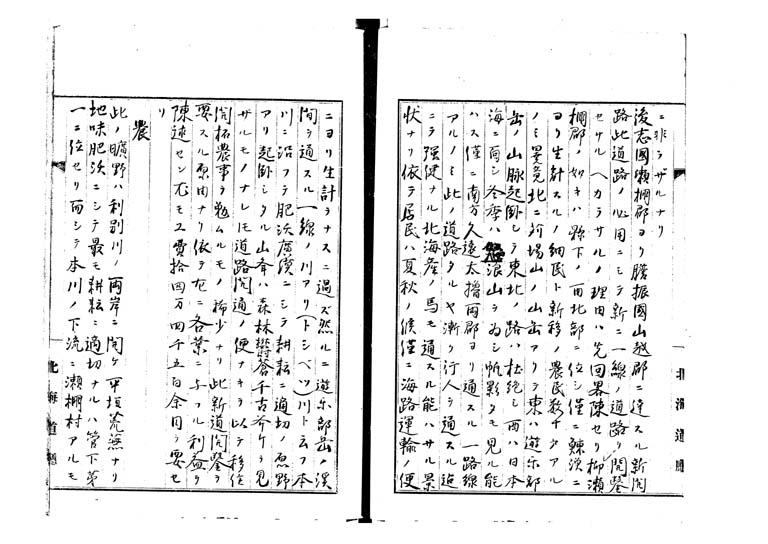 ニ非ラザルナリ
後志國瀬棚郡ヨリ膽振國山越郡ニ達スル新開
路此道路ノ必用ニシテ新ニ一線ノ道路ヲ開鑿
セサルヘカラサルノ理由ハ先回畧陳セリ抑瀬
棚郡ノ如キハ縣下ノ西北部ニ位シ僅ニ鰊漁ニ
ヨリ生計スルノ細民ト新移ノ農民数千アル
ノミ畢竟北ニ新場山ノ山岳アリテ東ハ遊樂部
岳ノ山脈起臥シテ東北ノ路ハ杜絶シ西ハ日本
海ニ面シ冬季ハ浪山ヲ為シ帆影タモ見ル能
ハス僅ニ南方久遠太櫓両郡ヨリ通スル一路線
アルノミ此ノ道路タルヤ漸ク行人ヲ通スル迠
ニテ強健ナル北海産ノ馬モ通スル能ハサル景
状ナリ依テ居民ハ夏秋ノ候僅ニ海路運輸ノ便
北海道廳
ニヨリ生計ヲナスニ過ズ然ルニ遊樂部岳ノ渓
間ヲ通スル一線ノ川アリ(トシベツ)川ト云フ本
川ニ沿フテ肥沃廣漠ニシテ耕耘ニ適切ノ原野
アリ起臥シタル山峯ハ森林欝蒼千古斧斤ヲ見
ザルモノナレ𪜈道路開通ノ便ナキヲ以テ移住
開拓農事ヲ勉ムルモノ稀少ナリ此新道開鑿ヲ
要スル原由ナリ依テ左ニ各業ニ与フル利益ヲ
陳述セン尤モ工費拾四万四千五百余円ヲ要セ
リ
農
此ノ曠野ハ利別川ノ両岸ニ開ケ平坦荒蕪ナリ
地味肥沃ニシテ最モ耕耘ニ適切ナルハ管下第
一ニ位セリ而シテ本川ノ下流ニ瀬棚村アルモ
北海道廳